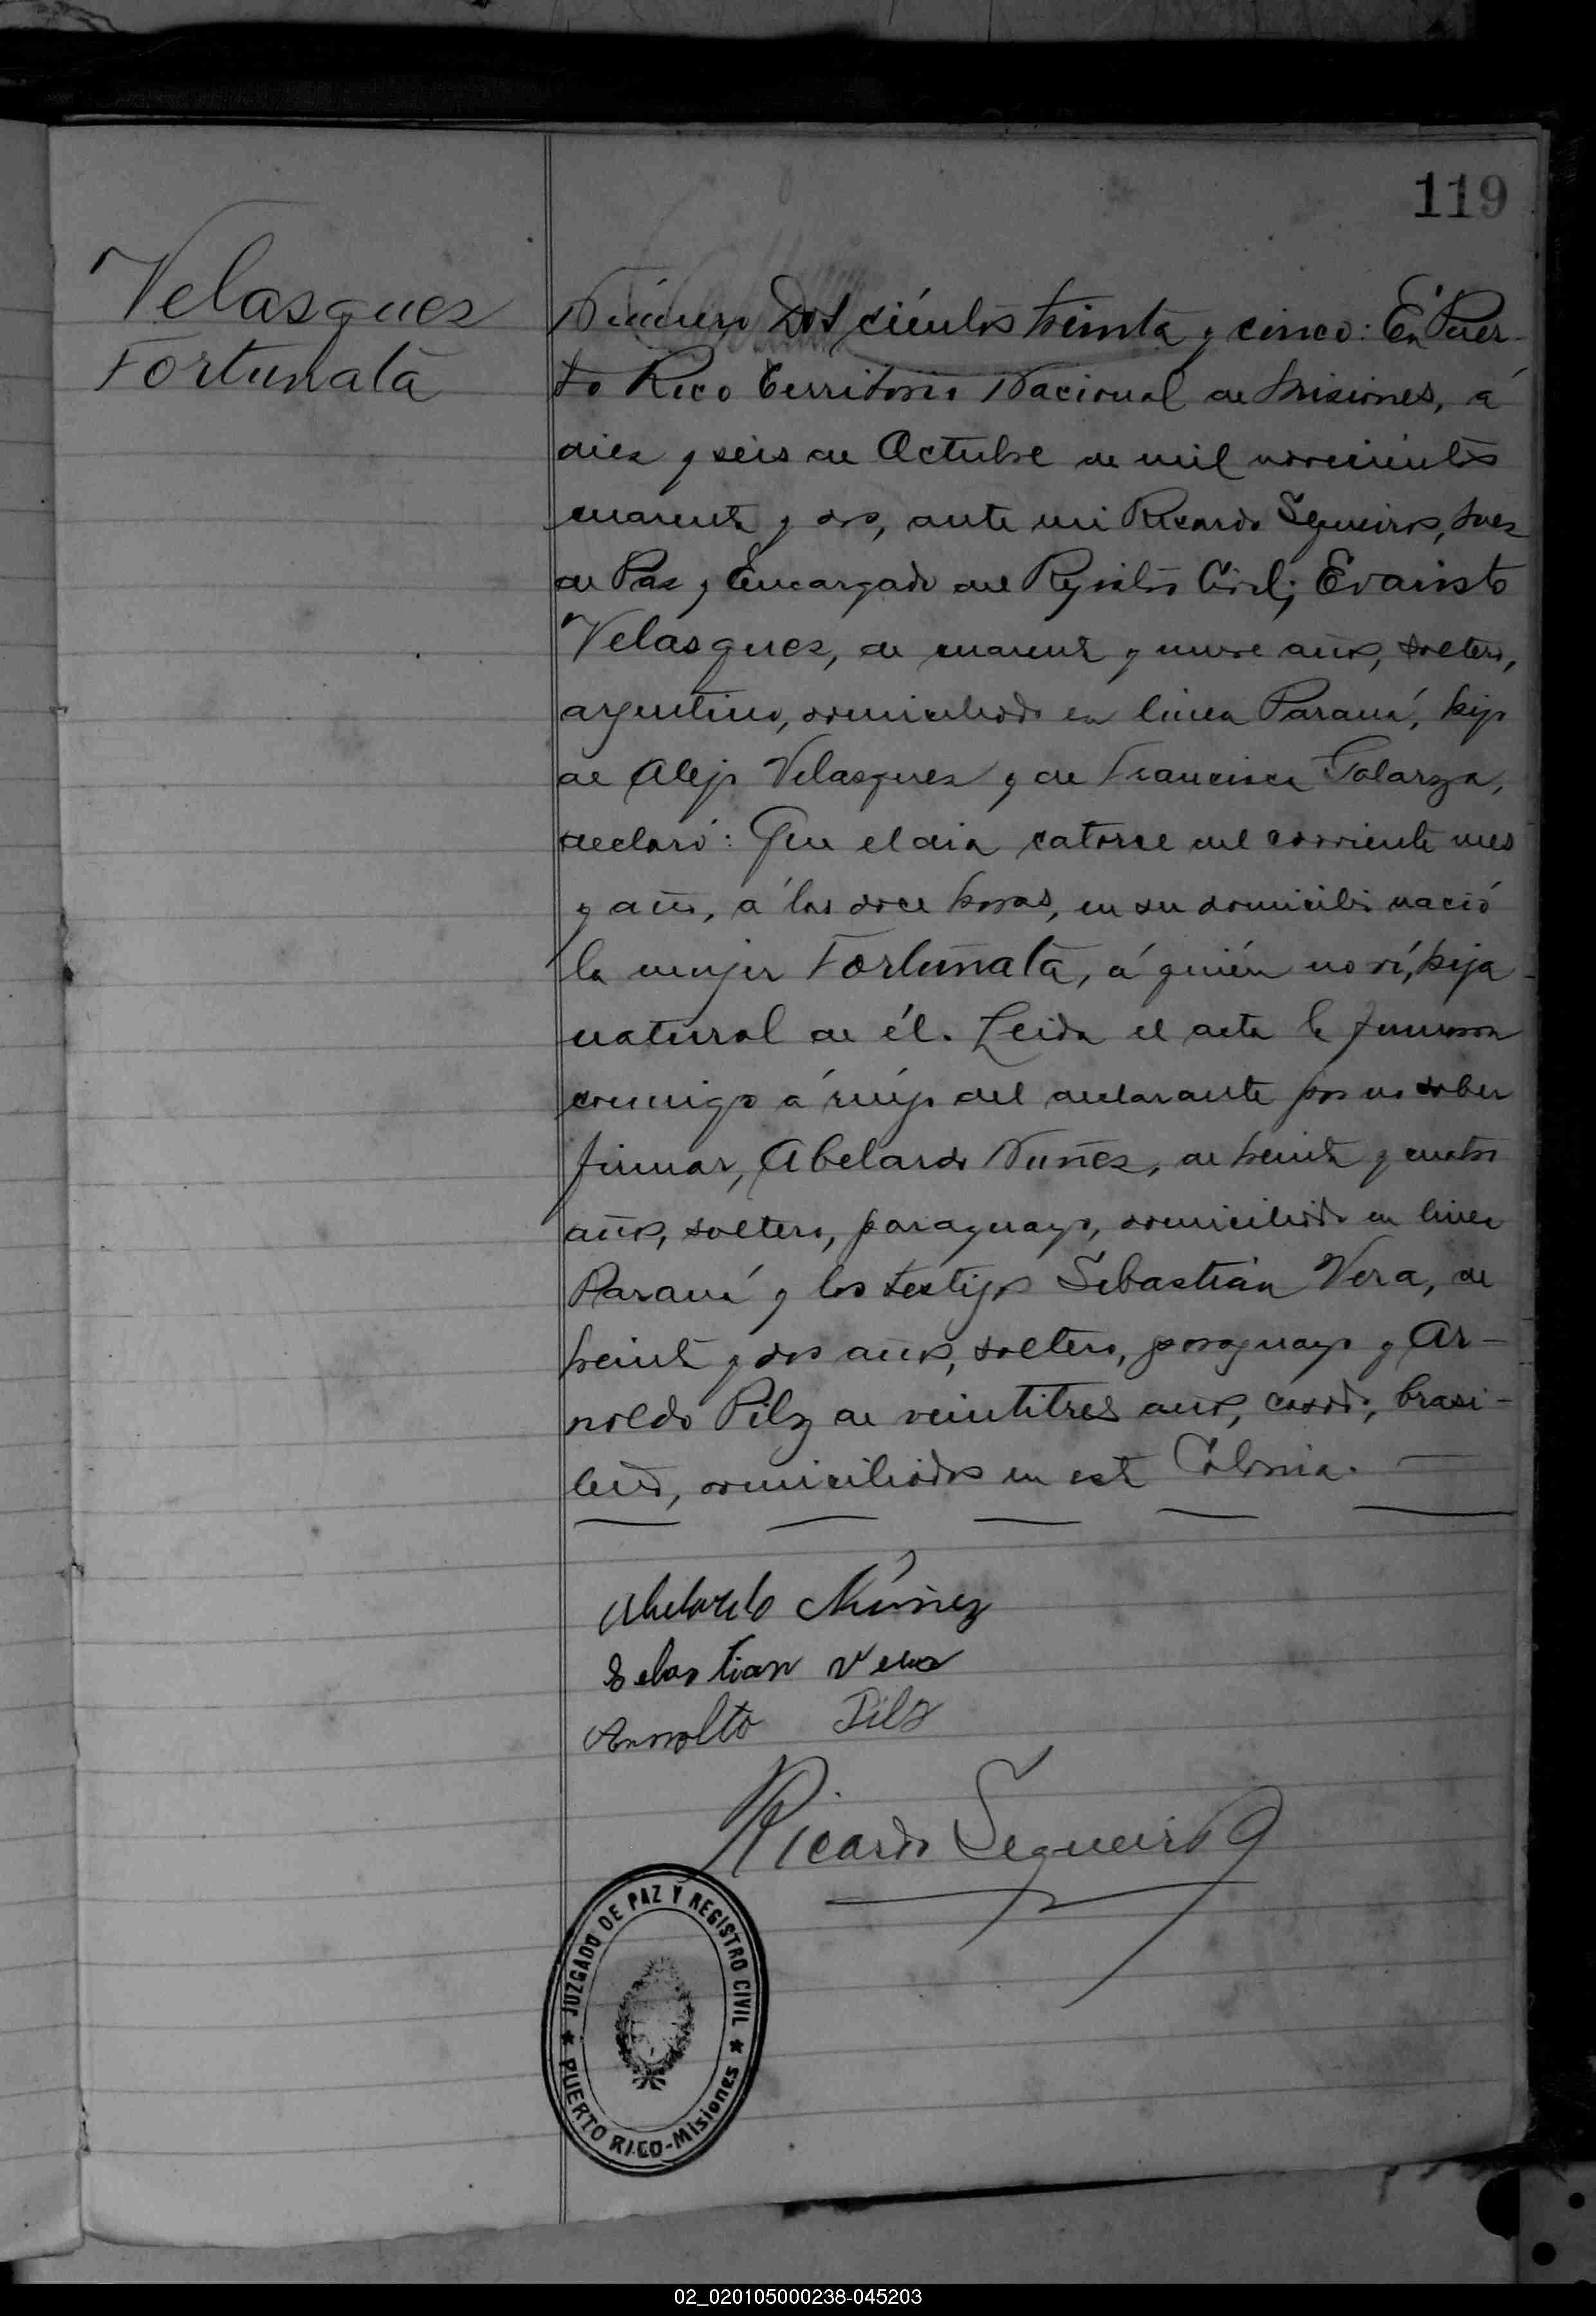 119
Velasques
Fortunata
Número Dos ciéntos treinta y cinco: En Puer-
to Rico Territorio Nacional de Misiones, á
diez y seis de Octubre de mil novecientos
cuarenta y dos, ante mi Ricardo Sequeiros, Juez
de Paz y Encargado del Registro Civil; Evaristo
Velasques, de cuarenta y nueve años, soltero,
argentino, domiciliado en linea Paraná, hijo
de Alejo Velasques y de Francisca Galarza,
declaró: Que el dia catorce del corriente mes
y año, á las doce horas, en su domicilio nació
la mujer Fortunata, á quién no ví, hija
natural de él. Leida el acta la firmaron
conmigo á ruego del declarante por no saber
firmar, Abelardo Nuñez, de treinta y cuatro
años, soltero, paraguayo, domiciliado en linea
Paraná y los testigos Sebastián Vera, de
treinta y dos años, soltero, paraguayo y Ar-
noldo Pilz de veintitres años, casado, brasi-
leño, domiciliados en esta Colonia.
Abelardo Núñez
Sebastian Vera
Arnolto Pilz
Ricardo Sequeiros
JUZGADO DE PAZ Y REGISTRO CIVIL
PUERTO RICO-Misiones
02_020105000238-045203